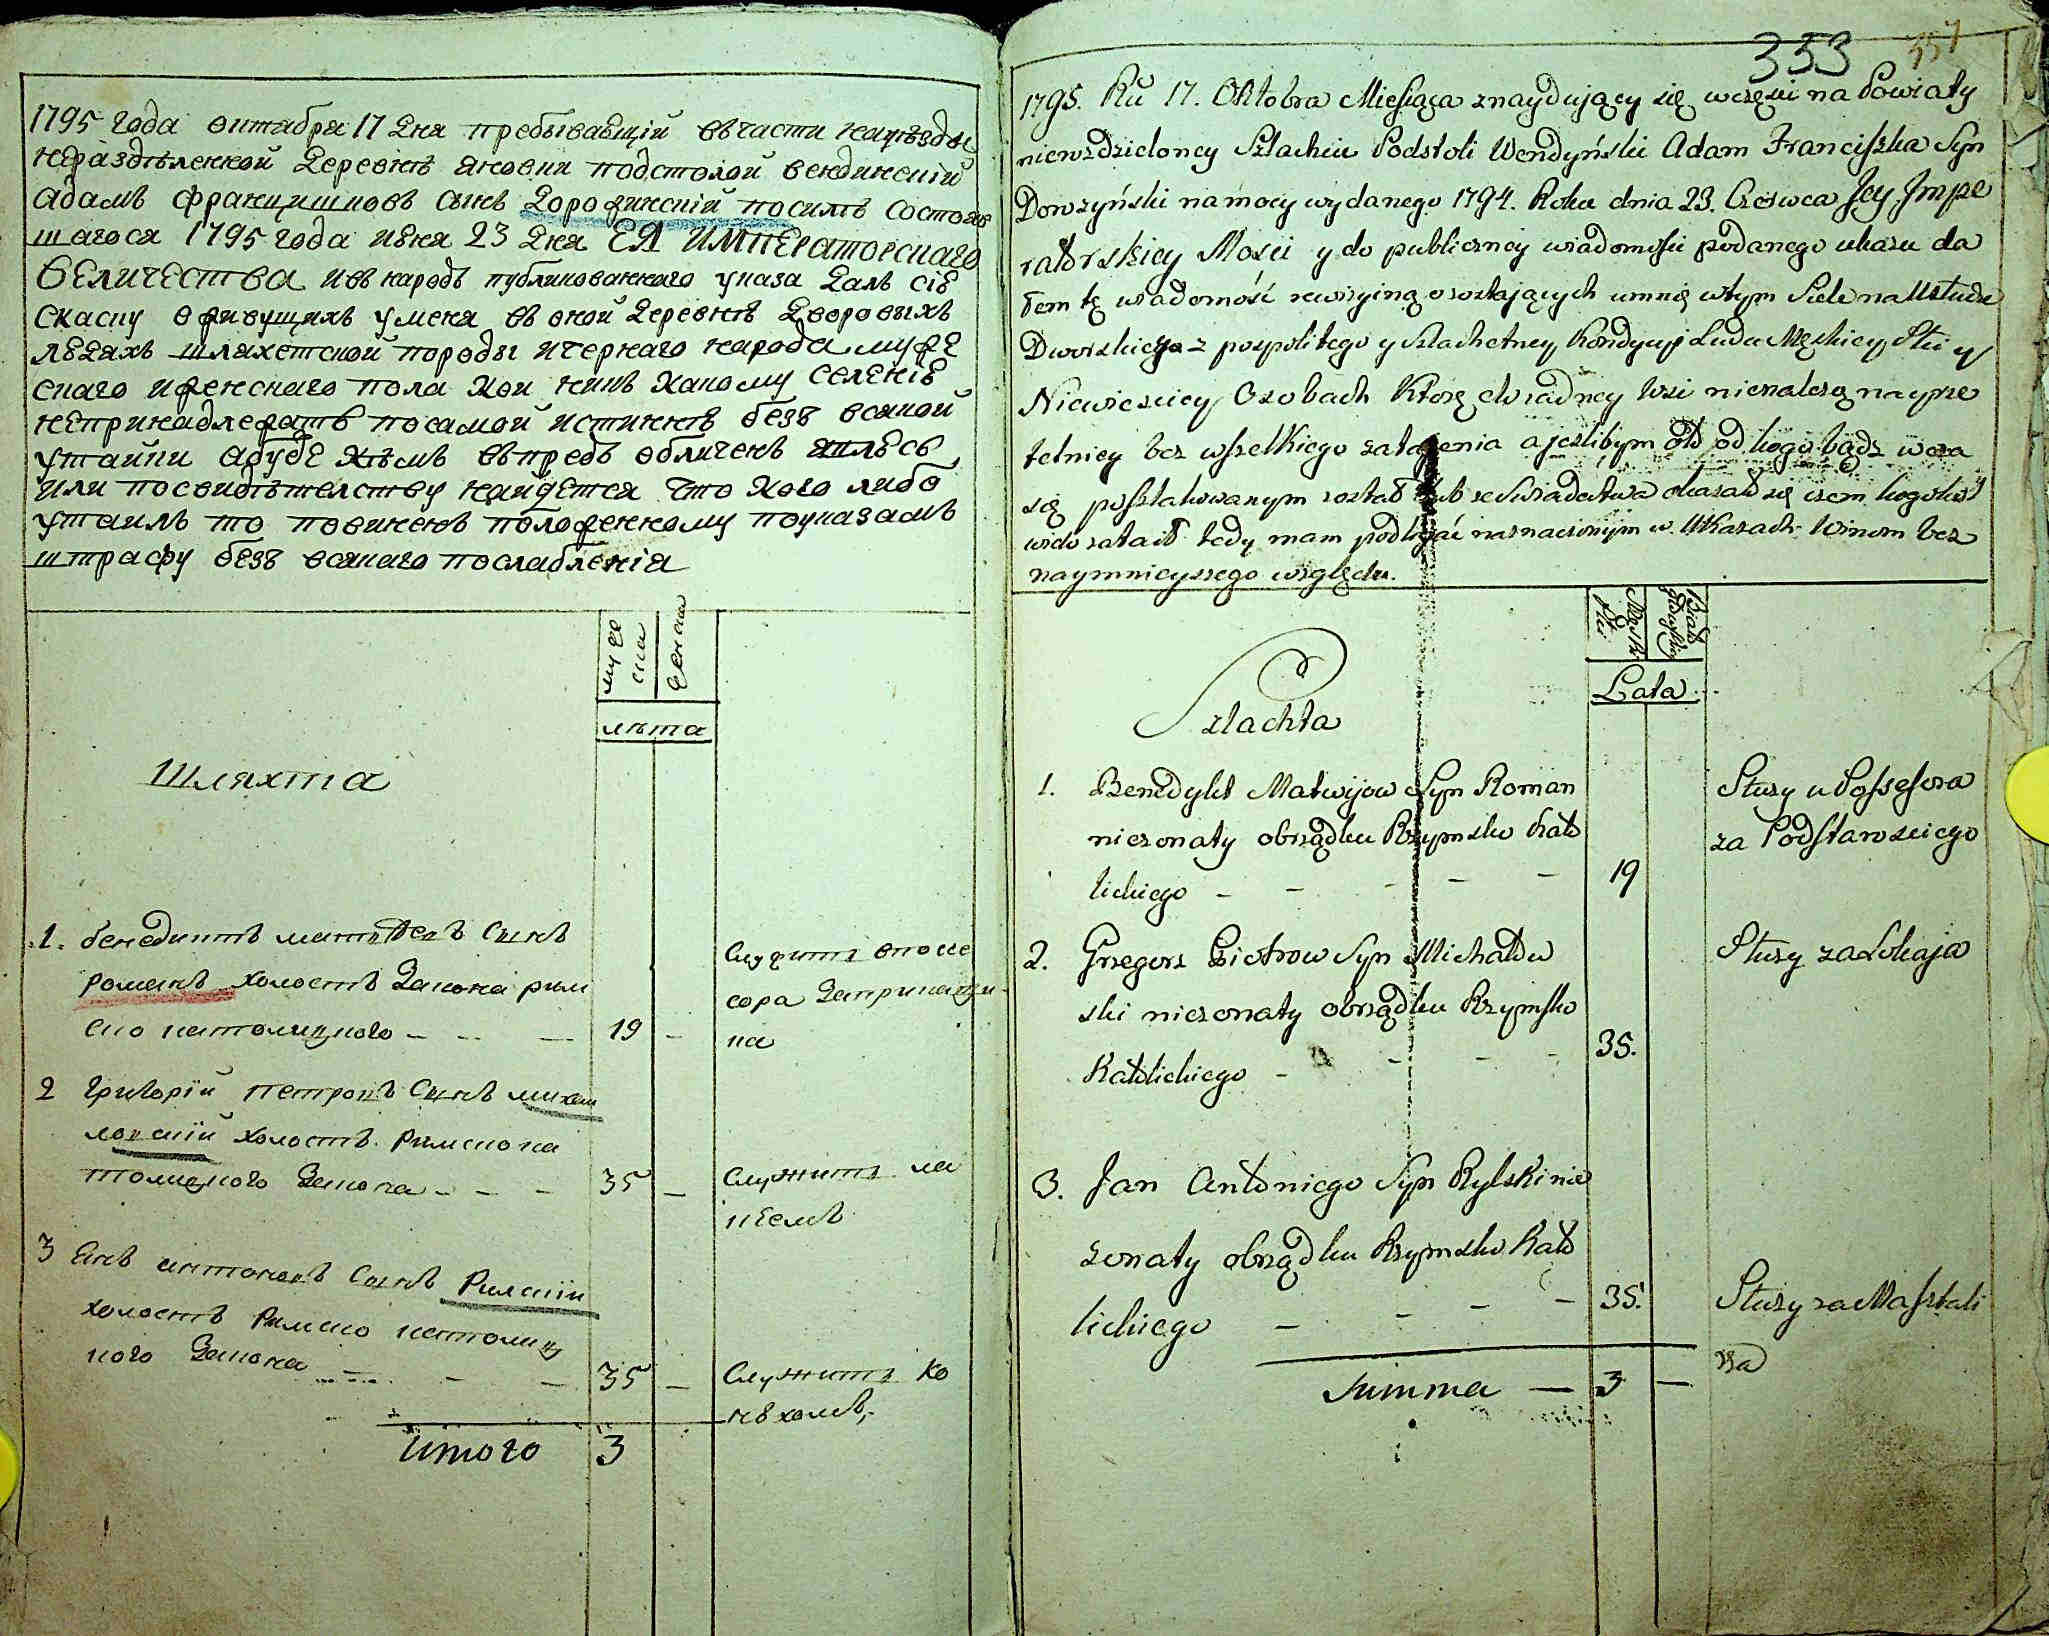 1795 года октабра 17 дня пребывающій в части на уѣзды
нераздѣленной деревнѣ Яновки подстолій вендинскій
адамъ францишковъ сынъ дорожинскій посилѣ состояв
шагося 1795 года июня 23 дня ЕЯ ИМПЕРаторскаго
ВЕЛИЧЕСТВа и въ народъ публикованнаго указа далъ сіе
скаску о живущихъ у меня въ оной деревнѣ дворовыхъ
людяхъ шляхетской породы и чернаго народа муже
скаго и женскаго пола кои никъ какому селенію
непринадлежатъ посамой истиннѣ безъ всякой
утайки абуде кѣмъ впредь обличенъ явлюсь
или посвидѣтелству найдется что кого либо
утаилъ то повиненъ положенному поуказамъ
штрафу безъ всякаго послабленія
муже
ска
женска
лѣта
Шляхта
1. бенедиктъ матвѣевъ сынъ
романъ холостъ закона рим
ско католицкого - - - 19 -
служитъ впосе
сора
ка
2 григорій петровъ сынъ михай
ловскій холостъ римскока
толицкого закона - - - 35 -
служитъ ла
кѣемъ
3 Янъ антоновъ сынъ Рилскій
холостъ римско католиц
кого закона - - - 35 -
служитъ ко
нюхомъ,
итого 3
353 357
1795. Ku 17. Oktobra Miesiąca znaydujący się w części na Powiaty
nierozdzieloney Szlachcic Podstoli Wendyński Adam Franciszka Syn
Dorożyński na mocy wydanego 1794. Roku dnia 23. Czerwca Jey Impe
ratorskiey Mosci y do publiczney wiadomości podanego ukazu da
łem tę wiadomość rewizyiną o zostających u mnię w tym Siele na Usłudze
Dworskiey z pospolitego y szlachetney Kondycyi Ludu Męskiey Płci y
Niewieściey Osobach Które do żadney Wsi nienależą nayrze
telniey bez wszelkiego zatajenia a jeżlibym oto od kogo bądź wcza
się poszlakowanym został lub ze Swiadectwa okazało się żem kogokol
wiek zataił tedy mam podlegać naznaczonym w Ukazach Winom bez
naymnieyszego względu.
Męski
Płci
Biało
głowskiey
Lata
Szlachta
1. Benedykt Matwijow Syn Roman
nieżonaty obrządku Rzymsko Kato
lickiego - - - - - 19
Służy u Possesora
za Podstarosciego
2. Grzegorz Piotrow Syn Michałow
ski nieżonaty obrządku Rzymsko
Katolickiego - - - - 35.
Służy za Lokaja
3. Jan Antoniego Syn Rylski nie
żonaty obrządku Rzymsko Kato
lickiego - - - - 35.
Służy za Masztali
rza
Summa — 3 —